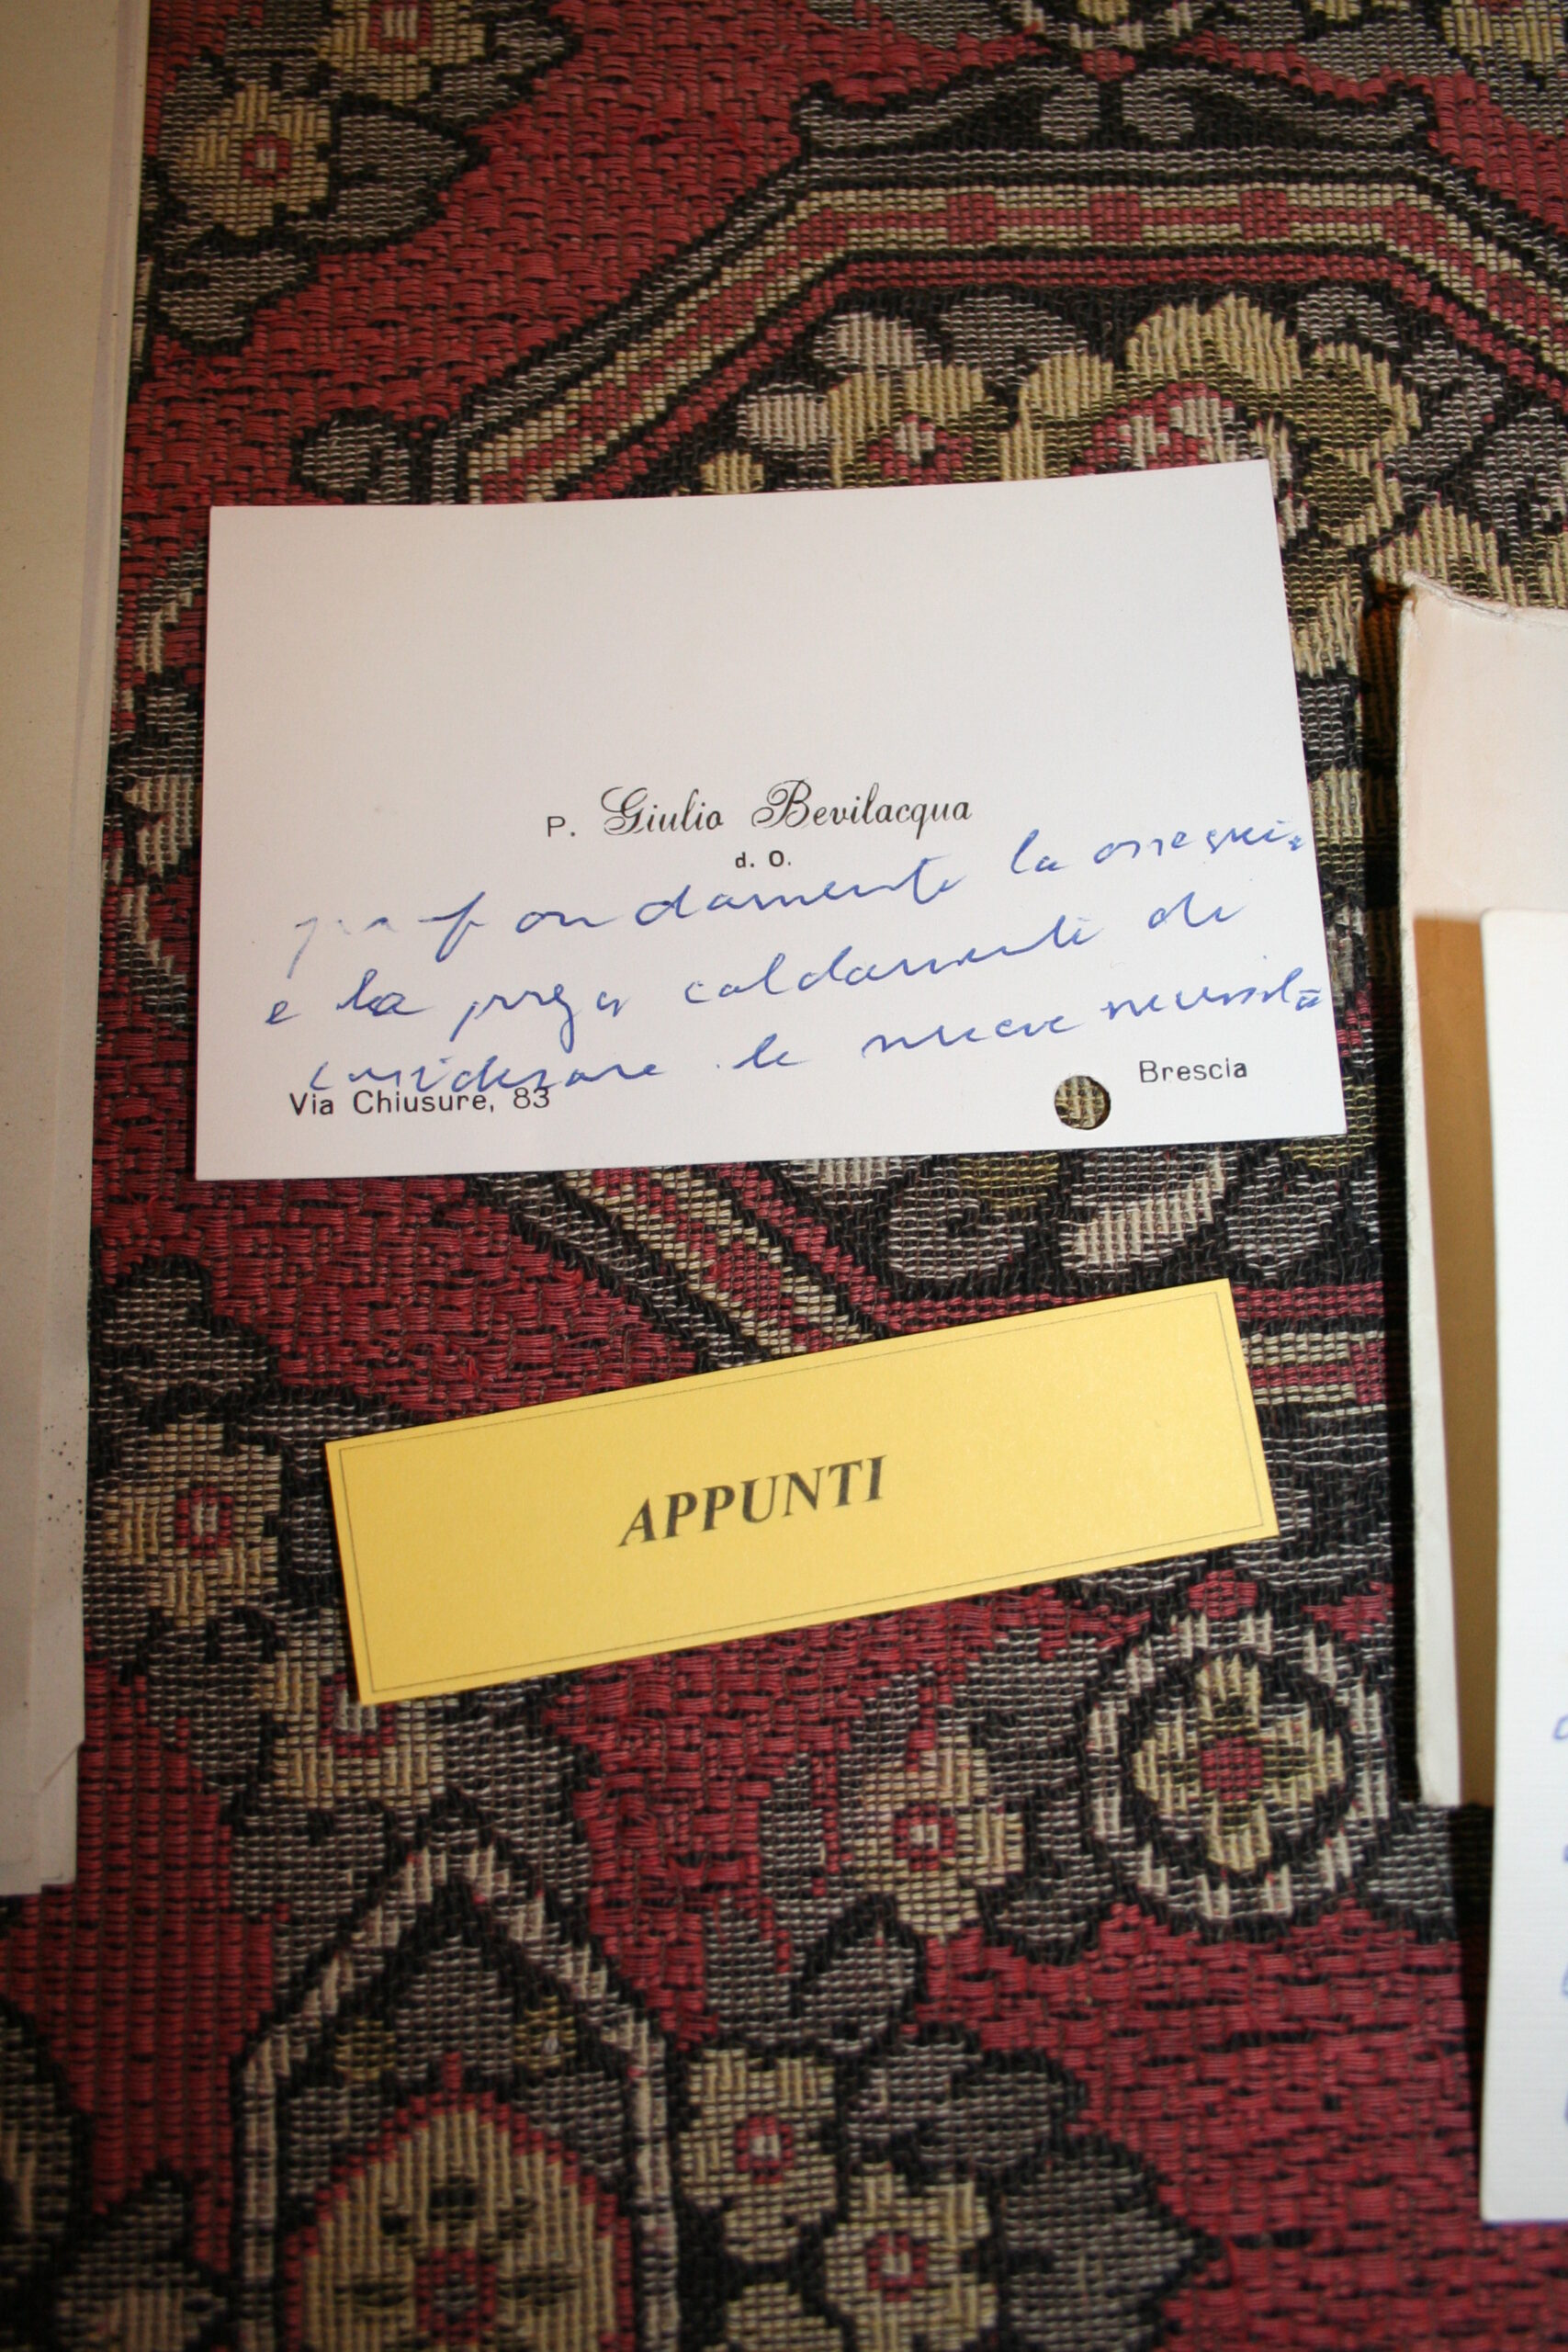 P. Giulio Bevilacqua
d. O.
profondamente la ossequi=
e la prega caldamente di
considerare le nuove necessità
Via Chiusure, 83
Brescia
APPUNTI